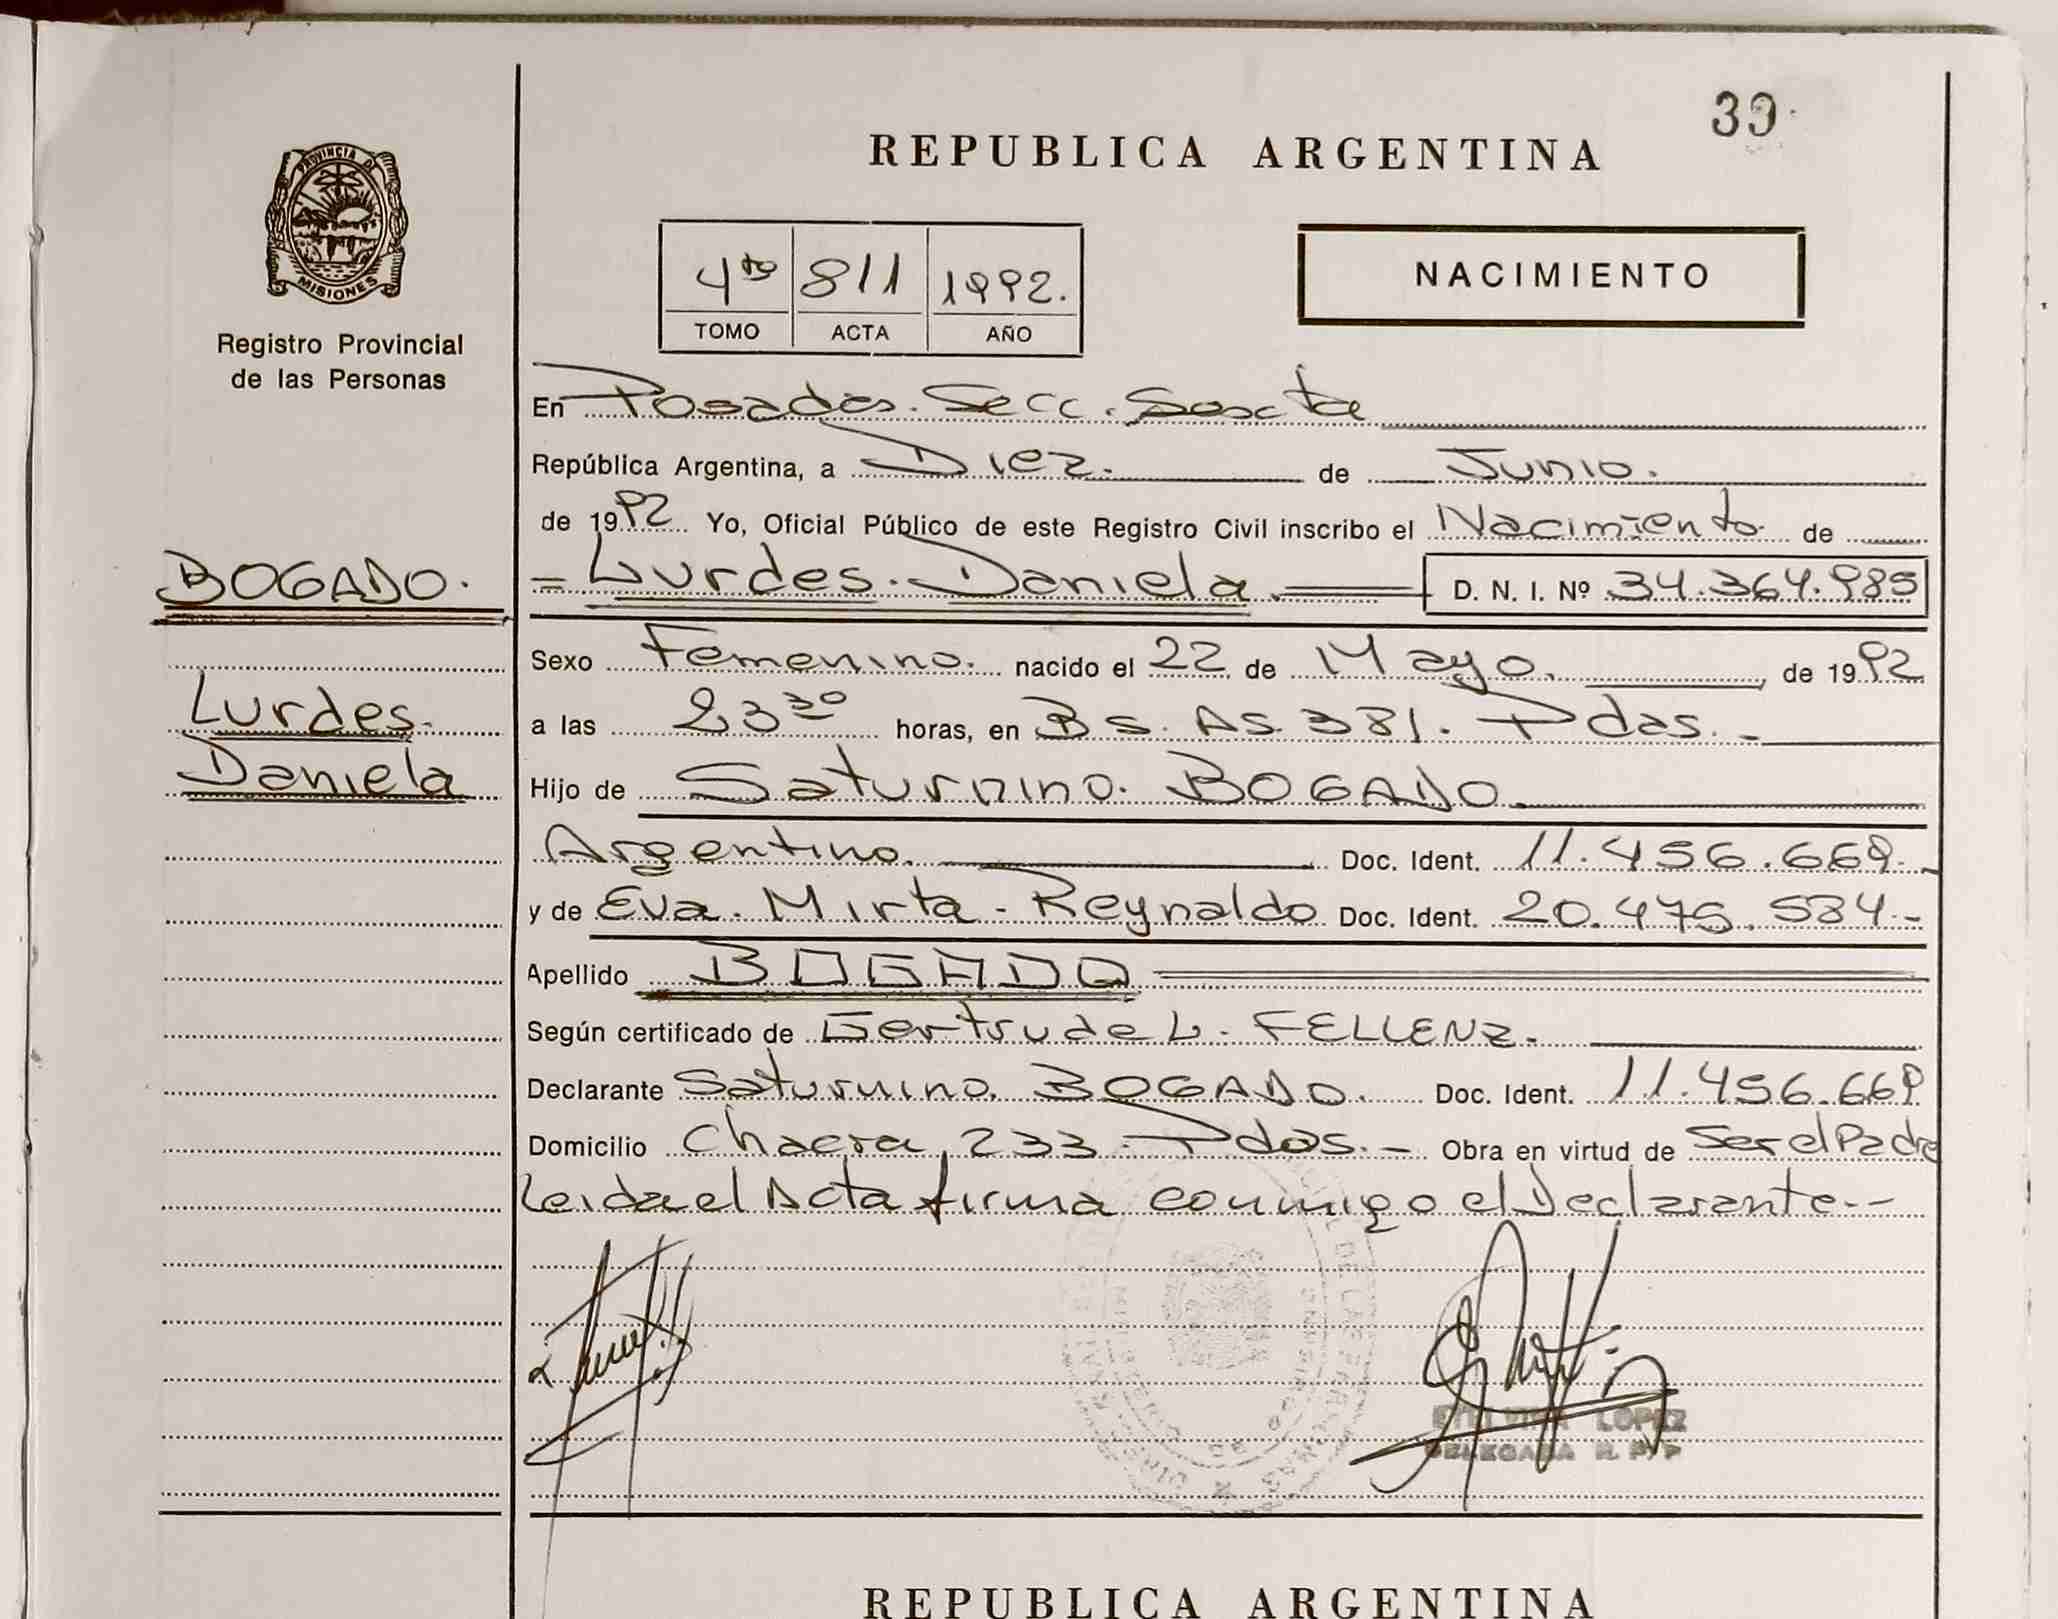 39
REPUBLICA ARGENTINA
PROVINCIA DE
MISIONES
Registro Provincial
de las Personas
4to 811 1992.
TOMO ACTA AÑO
NACIMIENTO
En Posadas. Secc. Sexta
República Argentina, a Diez. de Junio.
de 1992 Yo, Oficial Público de este Registro Civil inscribo el Nacimiento de
BOGADO.
= Lurdes. Daniela. D. N. I. Nº 34.364.985
Sexo Femenino. nacido el 22 de Mayo. de 1992
Lurdes.
Daniela
a las 23 30 horas, en Bs. As. 381. Pdas. -
Hijo de Saturnino. BOGADO.
Argentino. Doc. Ident. 11.456.669.-
y de Eva. Mirta - Reynaldo Doc. Ident. 20.475.584.-
Apellido BOGADO
Según certificado de Gertrude L. FELLENZ.
Declarante Saturnino. BOGADO. Doc. Ident. 11.456.669
Domicilio Chacra 233 - Pdas. - Obra en virtud de Ser el Padre
Leida el Acta firma conmigo el Declarante.--
LOPEZ
DELEGADA R. P. P
REPUBLICA ARGENTINA